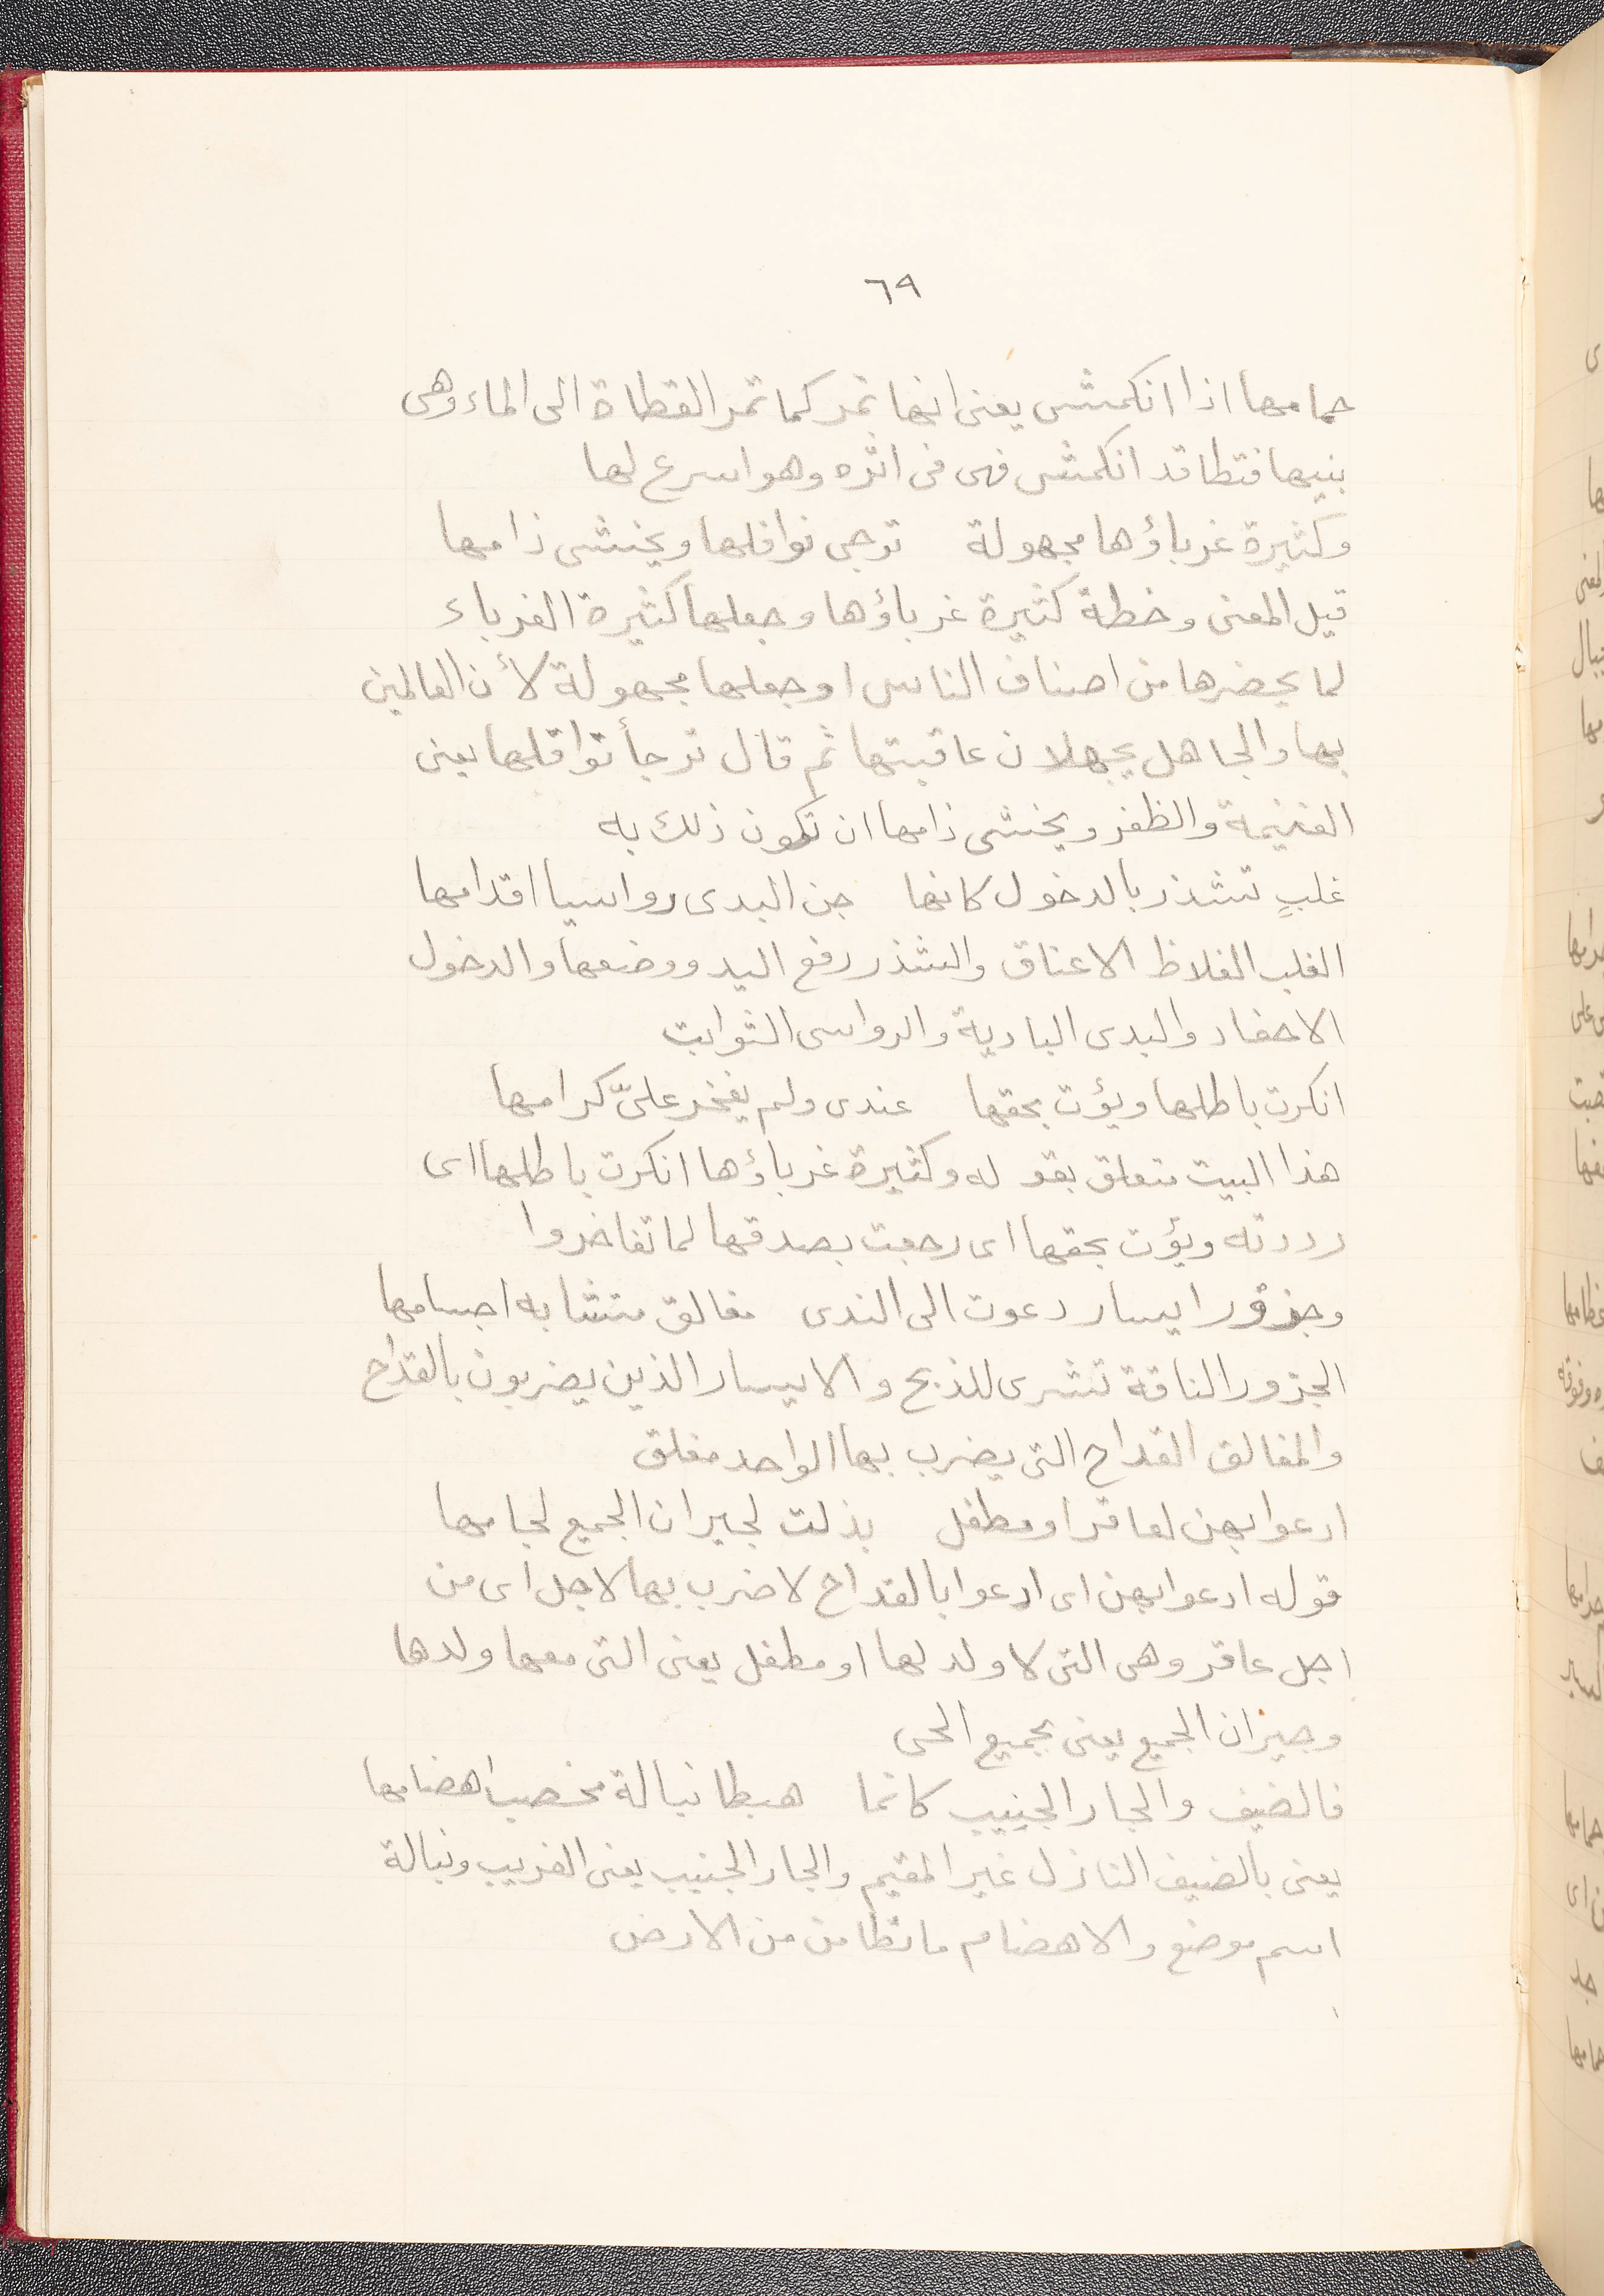 ٦٩
حمامها اذا انكمش يعنى انها تمر كما تمر القطاة الى الماء وهى
بنيها فتطا قد انكمش فهى فى اثره وهو اسرع لها
وكثيرة غرباؤها مجهولة ترجى نوافلها ويخشى ذامها
قيل المعنى وخطة كثيرة غرباؤها وجعلها كثيرة الغرباء
لما يحضرها من اصناف الناس او جعلها مجهولة لأن العالمين
بها والجاهل يجهلان عاقبتها ثم قال ترجأ توافلها يعنى
الغنيمة والظفر ويخشى ذامها ان تكون ذلك به
غلبٍ تشذر بالدخول كانها جن البدى رواسيا اقدامها
الغلب الغلاظ الاعناق والشذر رفع اليد ووضعها والدخول
الاحقاد والبدى البادية والرواسى الثوابت
انكرت باطلها ويؤت بحقها عندى ولم يفخر علىّ كرامها
هذا البيت متعلق بقو له وكثيرة غرباؤها انكرت باطلها اى
رددته وبؤت بحقها اى رجعت بصدقها لما تفاخروا
وجزور ايسار دعوت الى الندى مغالق متشابه اجسامها
الجزور الناقة تشرى للذبح والايسار الذين يضربون بالقداح
والمغالق القداح التى يضرب بها الواحد مغلق
ادعوا بهن لعاقر او مطفل بذلت لجيران الجميع لحامها
قوله ادعوا بهن اى ادعوا بالقداح لاضرب بها لاجل اى من
اجل عاقر وهى التى لا ولد لها او مطفل يعنى التى معها ولدها
وجيران الجميع يعنى بجميع الحى
فالضيف والجار الجنيب كانما هبطا تبالة مخصبا اهضامها
يعنى بالضيف النازل غير المقيم والجار الجنيب يعنى الغريب وتبالة
اسم موضع والاهضام ما تطامن من الارض